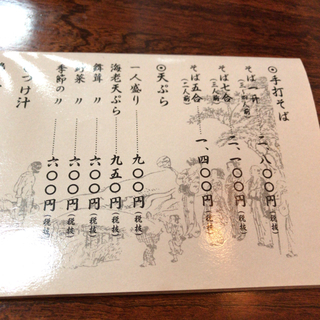 ◎手打そば
そば一升 二、八〇〇円(税抜)
そば七合 二、一〇〇円(税抜)
(三人前)
そば五合 一、四〇〇円(税抜)
(二人前)
◎天ぷら
一人盛り 九〇〇円(税抜)
海老天ぷら 九五〇円(税抜)
舞茸 〃 六〇〇円(税抜)
野菜 〃 六〇〇円(税抜)
季節の〃 六〇〇円(税抜)
つけ汁